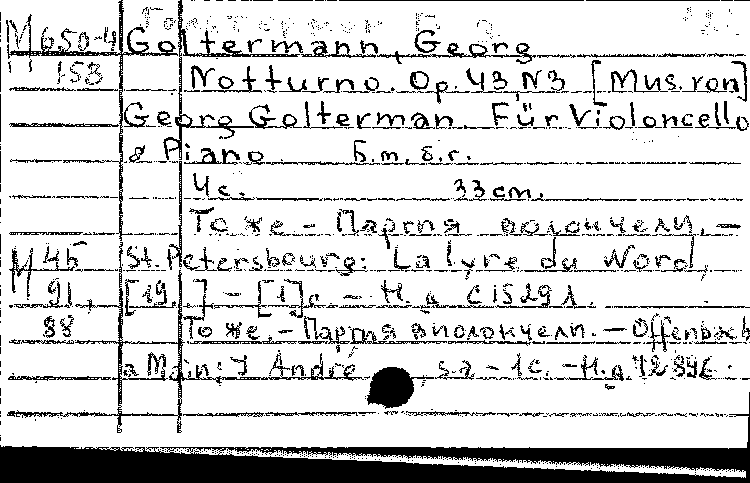 Гольтерман Г. Э.
М 650-4 Goltermann, Georg
158 Notturno. Op. 43, N3 [Mus. von]
Georg Golterman. Für Violoncello
& Piano. Б.m. б.г.
4 с. 33 cm.
То же – Партия виолончели. –
М 45 St. Petersbourg: La lyre du Nord,
91, [19. ]. – [1] с. – Н.д. С 1529 1.
88 То же. – Партия виолончели. – Offenbach
a Main: J André, s.a – 1 с. – Н.д.